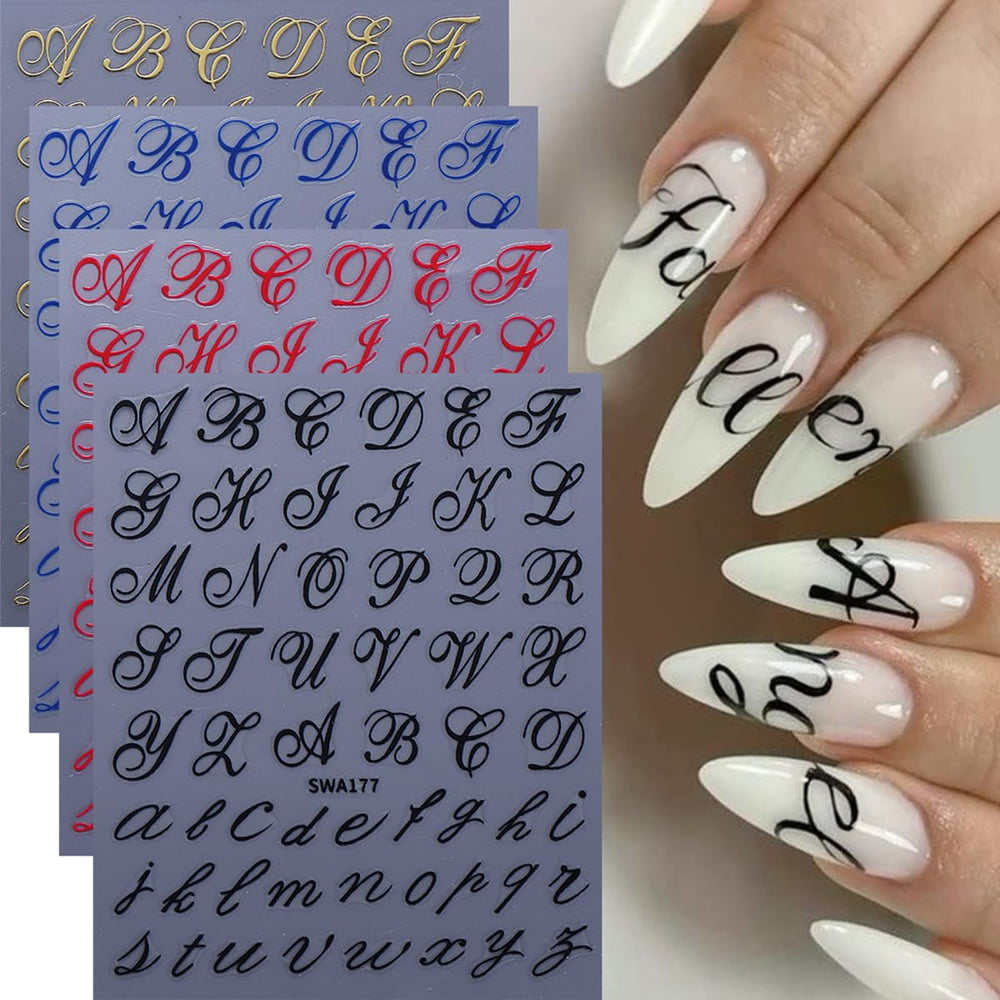 A B C D E F
A B C D E F
G H I J K L
A B C D E F
G H I J K L
A B C D E F
G H I J K L
M N O P Q R
S T U V W X
Y Z A B C D
SWA177
a b c d e f g h i
j k l m n o p q r
s t u v w x y z
Fa
ll
en
A
ng
el